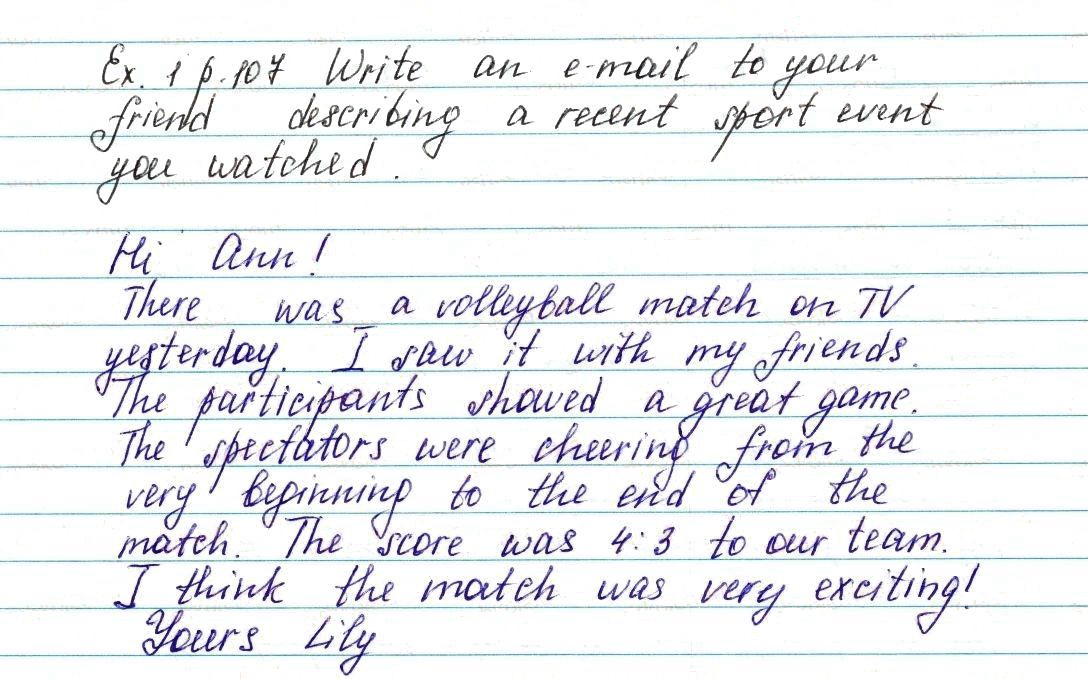 Ex. 1 p.107 Write an e-mail to your
friend describing a recent sport event
you watched.
Hi Ann!
There was a volleyball match on TV
yesterday. I saw it with my friends.
The participants showed a great game.
The spectators were cheering from the
very beginning to the end of the
match. The score was 4:3 to our team.
I think the match was very exciting!
Yours Lily